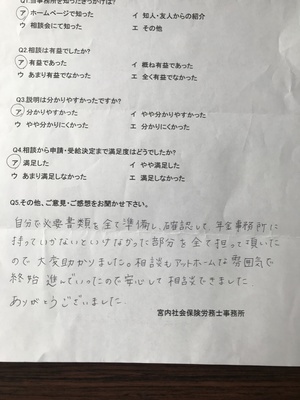 Q1.当事務所を知ったきっかけは?
ア ホームページで知った イ 知人・友人からの紹介
ウ 相談会にて知った エ その他
Q2.相談は有益でしたか?
ア 有益であった イ 概ね有益であった
ウ あまり有益でなかった エ 全く有益でなかった
Q3.説明は分かりやすかったですか?
ア 分かりやすかった イ やや分かりやすかった
ウ やや分かりにくかった エ 分かりにくかった
Q4.相談から申請・受給決定まで満足度はどうでしたか?
ア 満足した イ やや満足した
ウ あまり満足しなかった エ 満足しなかった
Q5.その他、ご意見・ご感想をお聞かせ下さい。
自分で必要書類を全て準備し、確認して年金事務所に
持っていかないといけなかった部分を全て担って頂いた
ので大変助かりました。相談もアットホームな雰囲気で
終始進んでいったので安心して相談できました
ありがとうございました
宮内社会保険労務士事務所